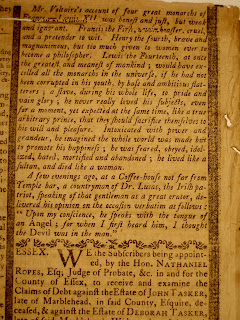 Mr. Voltaire's account of four great monarchs of
was honest and just, but weak
and ignorant. Francis the First, a boaster, cruel,
and a pretender to wit. Henry the fourth, brave and
magnanimous, but too much given to women ever to
become a philosopher. Lewis the Fourteenth, at once
the greatest and meanest of mankind; would have ex-
celled all the monarchs in the universe, if he had not
been corrupted in his youth, by base and ambitious flat-
terers; a slave, during his whole life, to pride and
vain glory; he never really loved his subjects, even
for a moment, yet expected at the same time, like a true
arbitrary prince, that they should sacrifice themselves to
his will and pleasure. Intoxicated with power and
grandeur, he imagined the whole world was made but
to promote his happiness; he was feared, obeyed, idol-
ized, hated, mortified and abandoned; he lived like a
sultan, and died like a woman.
A few evenings ago, at a Coffee-house not far from
Temple bar, a countryman of Dr. Lucas, the Irish pa-
triot, speaking of that gentleman as a great orator, de-
livered his opinion on the occasion verbatim as follows:
"Upon my conscience, he speaks with the tongue of
an Angel; for when I first heard him, I thought
the Devil was in the man."
ESSEX. WE the Subscribers being appoint-
ed, by the Hon. NATHANIEL
ROPES, Esq; Judge of Probate, &c. in and for the
County of Essex, to receive and examine the
Claims of Debt against the Estate of JOHN TASKER,
late of Marblehead, in said County, Esquire, de-
ceased, & against the Estate of DEBORAH TASKER,